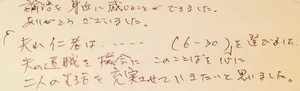 論語を身近に感じることができました。
ありがとうございました。
「夫れ仁者は ---- (6-30)」を選びました
夫の退職を機会に このことばを心に
二人の生活を充実させていきたいと思いました。